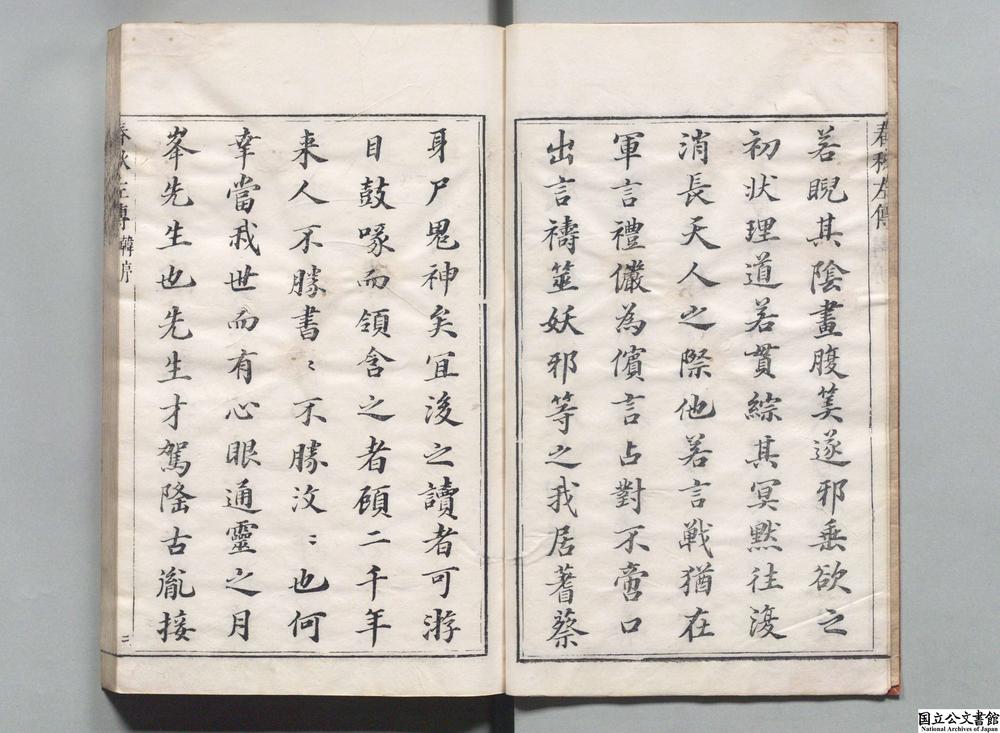 春秋左傳
若睨其陰畫腹筭遂邪乗欲之
初状理道若貫綜其冥黙往𣸪
消長天人之際他若言戦猶在
軍言禮儼為儐言占對不啻口
出言禱筮妖邪等之我居蓍蔡
身尸鬼神矣冝後之讀者可游
目鼓喙而領含之者碩二千年
来人不勝書〻不勝汶〻也何
幸當我世而有心眼通靈之月
峯先生也先生才駕隆古胤接
春秋左傳 韓序 二
国立公文書館
National Archives of Japan